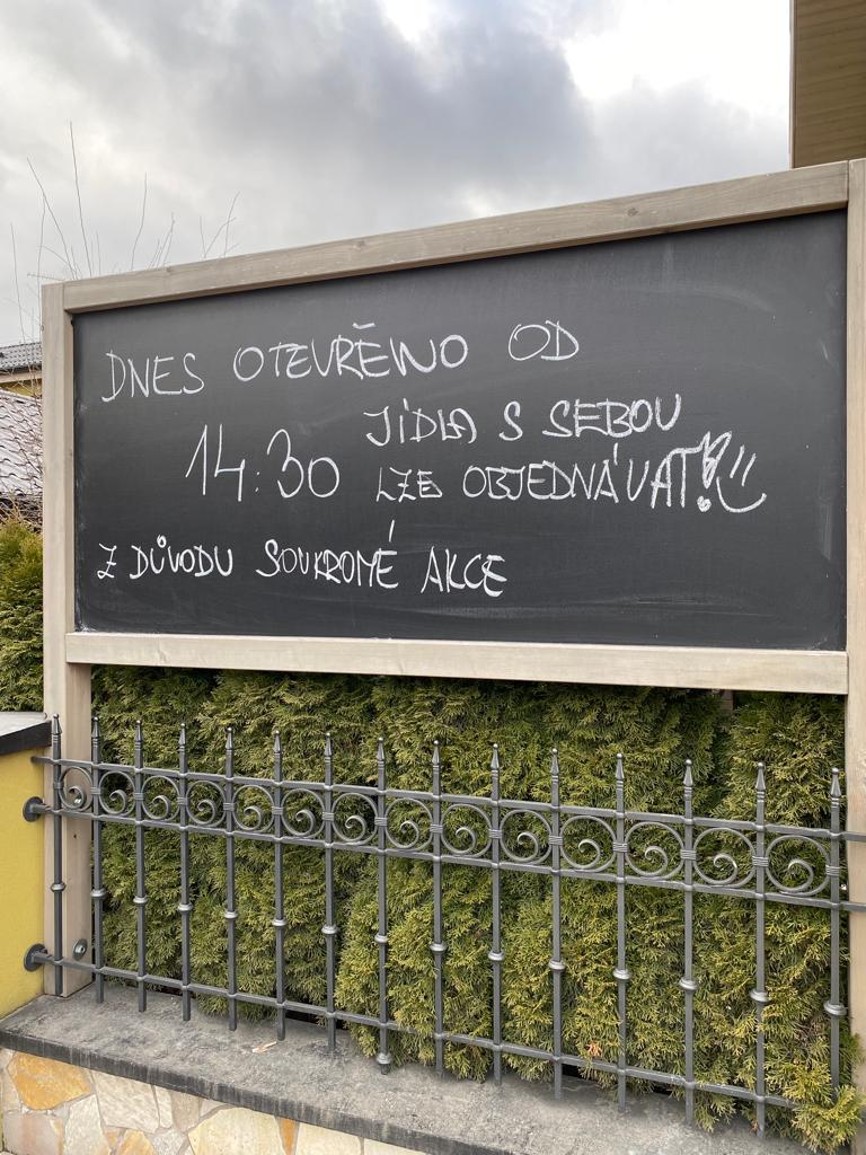 DNES OTEVŘENO OD
14:30
JÍDLA S SEBOU
LZE OBJEDNÁVAT!
Z DŮVODU SOUKROMÉ AKCE